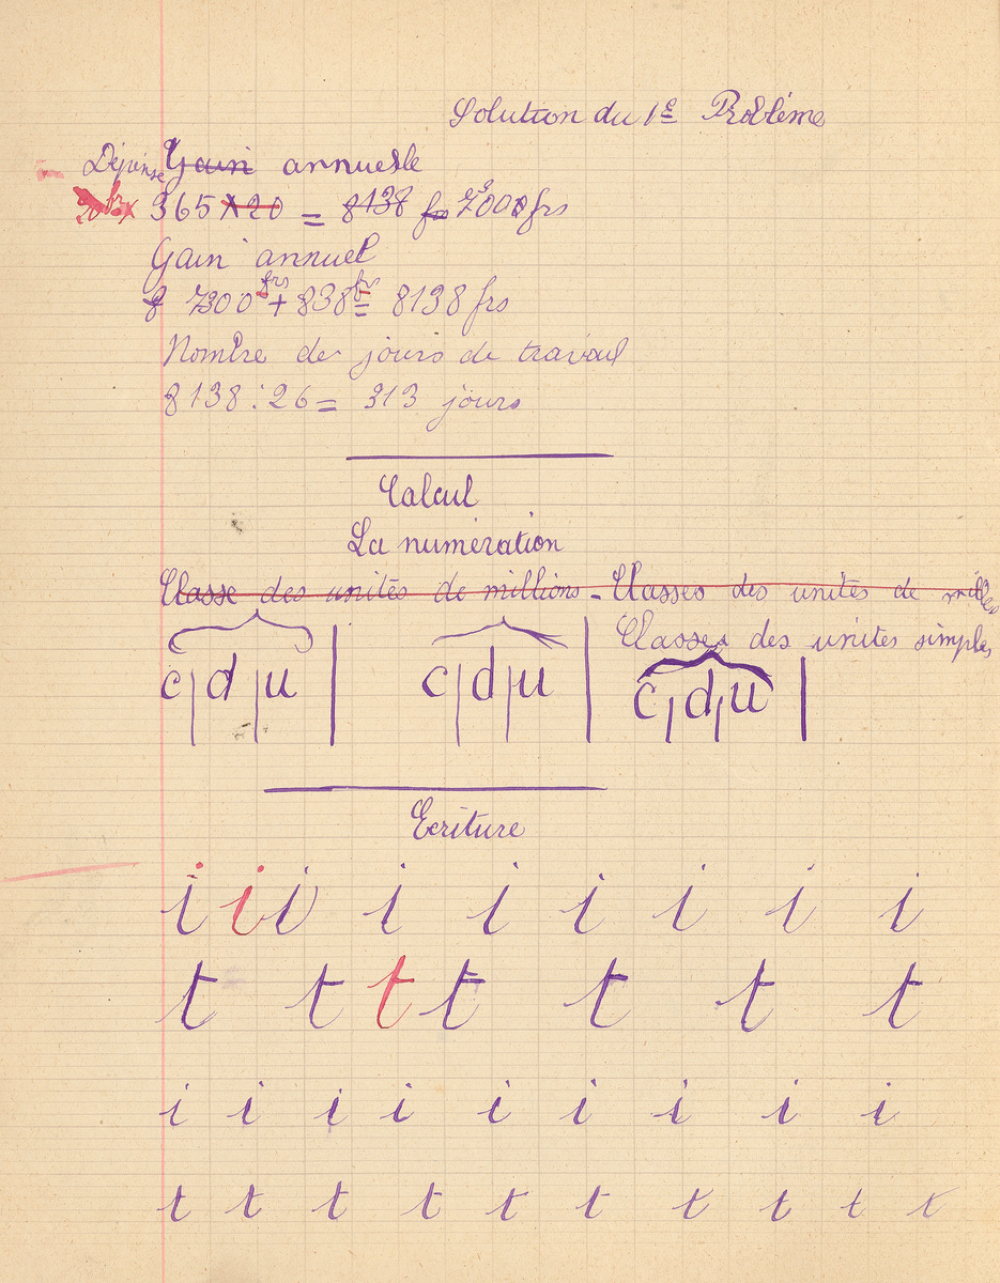 Solution du 1e Problème
Dépense Gain annuelle
20 frs x 365 x 20 = 8138 frs 7300 frs
Gain annuel
8 7300 frs + 838 frs = 8138 frs
Nombre de jours de travail
8138 : 26 = 313 jours
Calcul
La numération
Classe des unités de millions - Classes des unités de milles
Classes des unités simples
c d u c d u c d u
Ecriture
i i i i i i i i i
t t t t t t t
i i i i i i i i i
t t t t t t t t t t